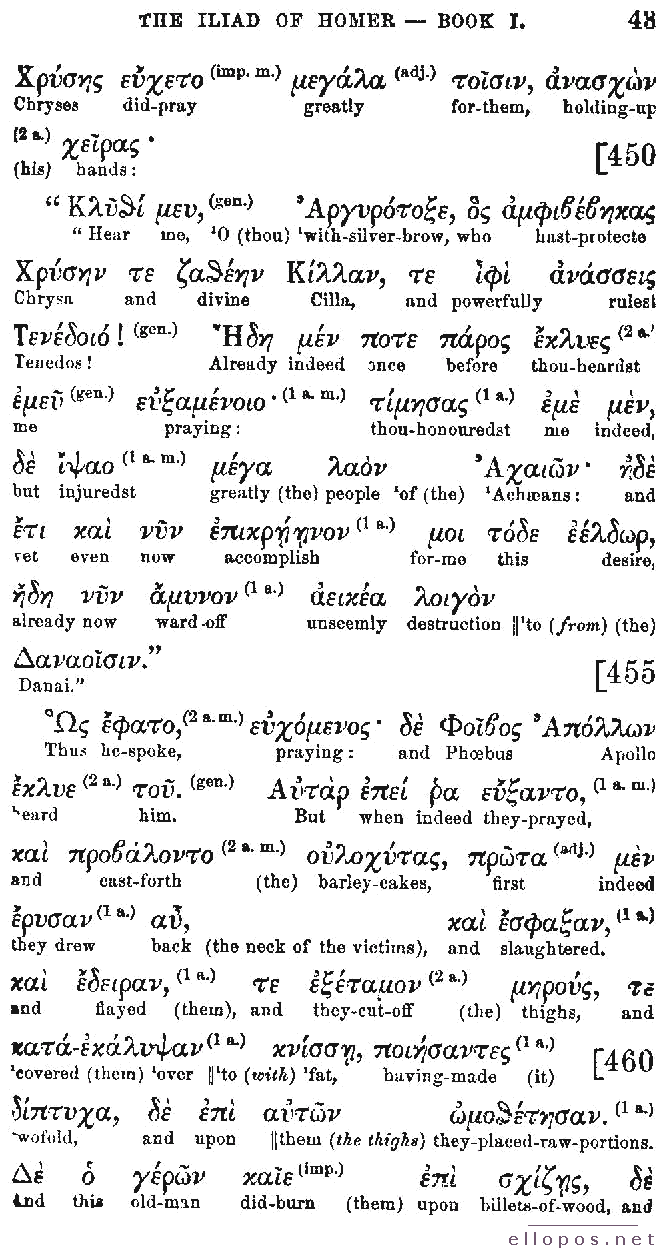 THE ILIAD OF HOMER — BOOK I. 43
Χρύσης εὔχετο (imp. m.) μεγάλα (adj.) τοῖσιν, ἀνασχὼν
Chryses did-pray greatly for-them, holding-up
(2 a.) χεῖρας · [450
(his) hands:
“ Κλῦϑί μευ, (gen.) Ἀργυρότοξε, ὃς ἀμφιβέβηκας
“ Hear me, ‘O (thou) ‘with-silver-brow, who hast-protecte
Χρύσην τε ζαϑέην Κίλλαν, τε ἶφὶ ἀνάσσεις
Chrysa and divine Cilla, and powerfully rulest
Τενέδοιό! (gen.) Ἤδη μέν ποτε πάρος ἔκλυες (2 a.
Tenedos! Already indeed once before thou-heardst
ἐμεῦ (gen.) εὐξαμένοιο · (1 a. m.) τίμησας (1 a.) ἐμὲ μὲν,
me praying: thou-honouredst me indeed,
δὲ ἴψαο (1 a. m.) μέγα λαὸν Ἀχαιῶν · ἠδὲ
but injuredst greatly (the) people ‘of (the) ‘Achæans: and
ἔτι καὶ νῦν ἐπικρήηνον (1 a.) μοι τόδε ἐέλδωρ,
yet even now accomplish for-me this desire,
ἤδη νῦν ἄμυνον (1 a.) ἀεικέα λοιγὸν
already now ward-off unseemly destruction ‖‘to (from) (the)
Δαναοῖσιν.” [455
Danai.”
Ὣς ἔφατο, (2 a. m.) εὐχόμενος · δὲ Φοῖβος Ἀπόλλων
Thus he-spoke, praying: and Phœbus Apollo
ἔκλυε (2 a.) τοῦ. (gen.) Αὐτὰρ ἐπεί ῥα εὔξαντο, (1 a. m.)
heard him. But when indeed they-prayed,
καὶ προβάλοντο (2 a. m.) οὐλοχύτας, πρῶτα (adj.) μὲν
and cast-forth (the) barley-cakes, first indeed
ἔρυσαν (1 a.) αὖ, καὶ ἔσφαξαν, (1 a.)
they drew back (the neck of the victims), and slaughtered.
καὶ ἔδειραν, (1 a.) τε ἐξέταμον (2 a.) μηρούς, τε
and flayed (them), and they-cut-off (the) thighs, and
κατά-ἐκάλυψαν (1 a.) κνίσσῃ, ποιήσαντες (1 a.) [460
‘covered (them) ‘over ‖‘to (with) ’fat, having-made (it)
δίπτυχα, δὲ ἐπὶ αὐτῶν ὠμοϑέτησαν. (1 a.)
wofold, and upon ‖them (the thighs) they-placed-raw-portions.
Δὲ ὁ γέρων καῖε (imp.) ἐπὶ σχίζῃς, δὲ
And this old-man did-burn (them) upon billets-of-wood, and
ellopos.net